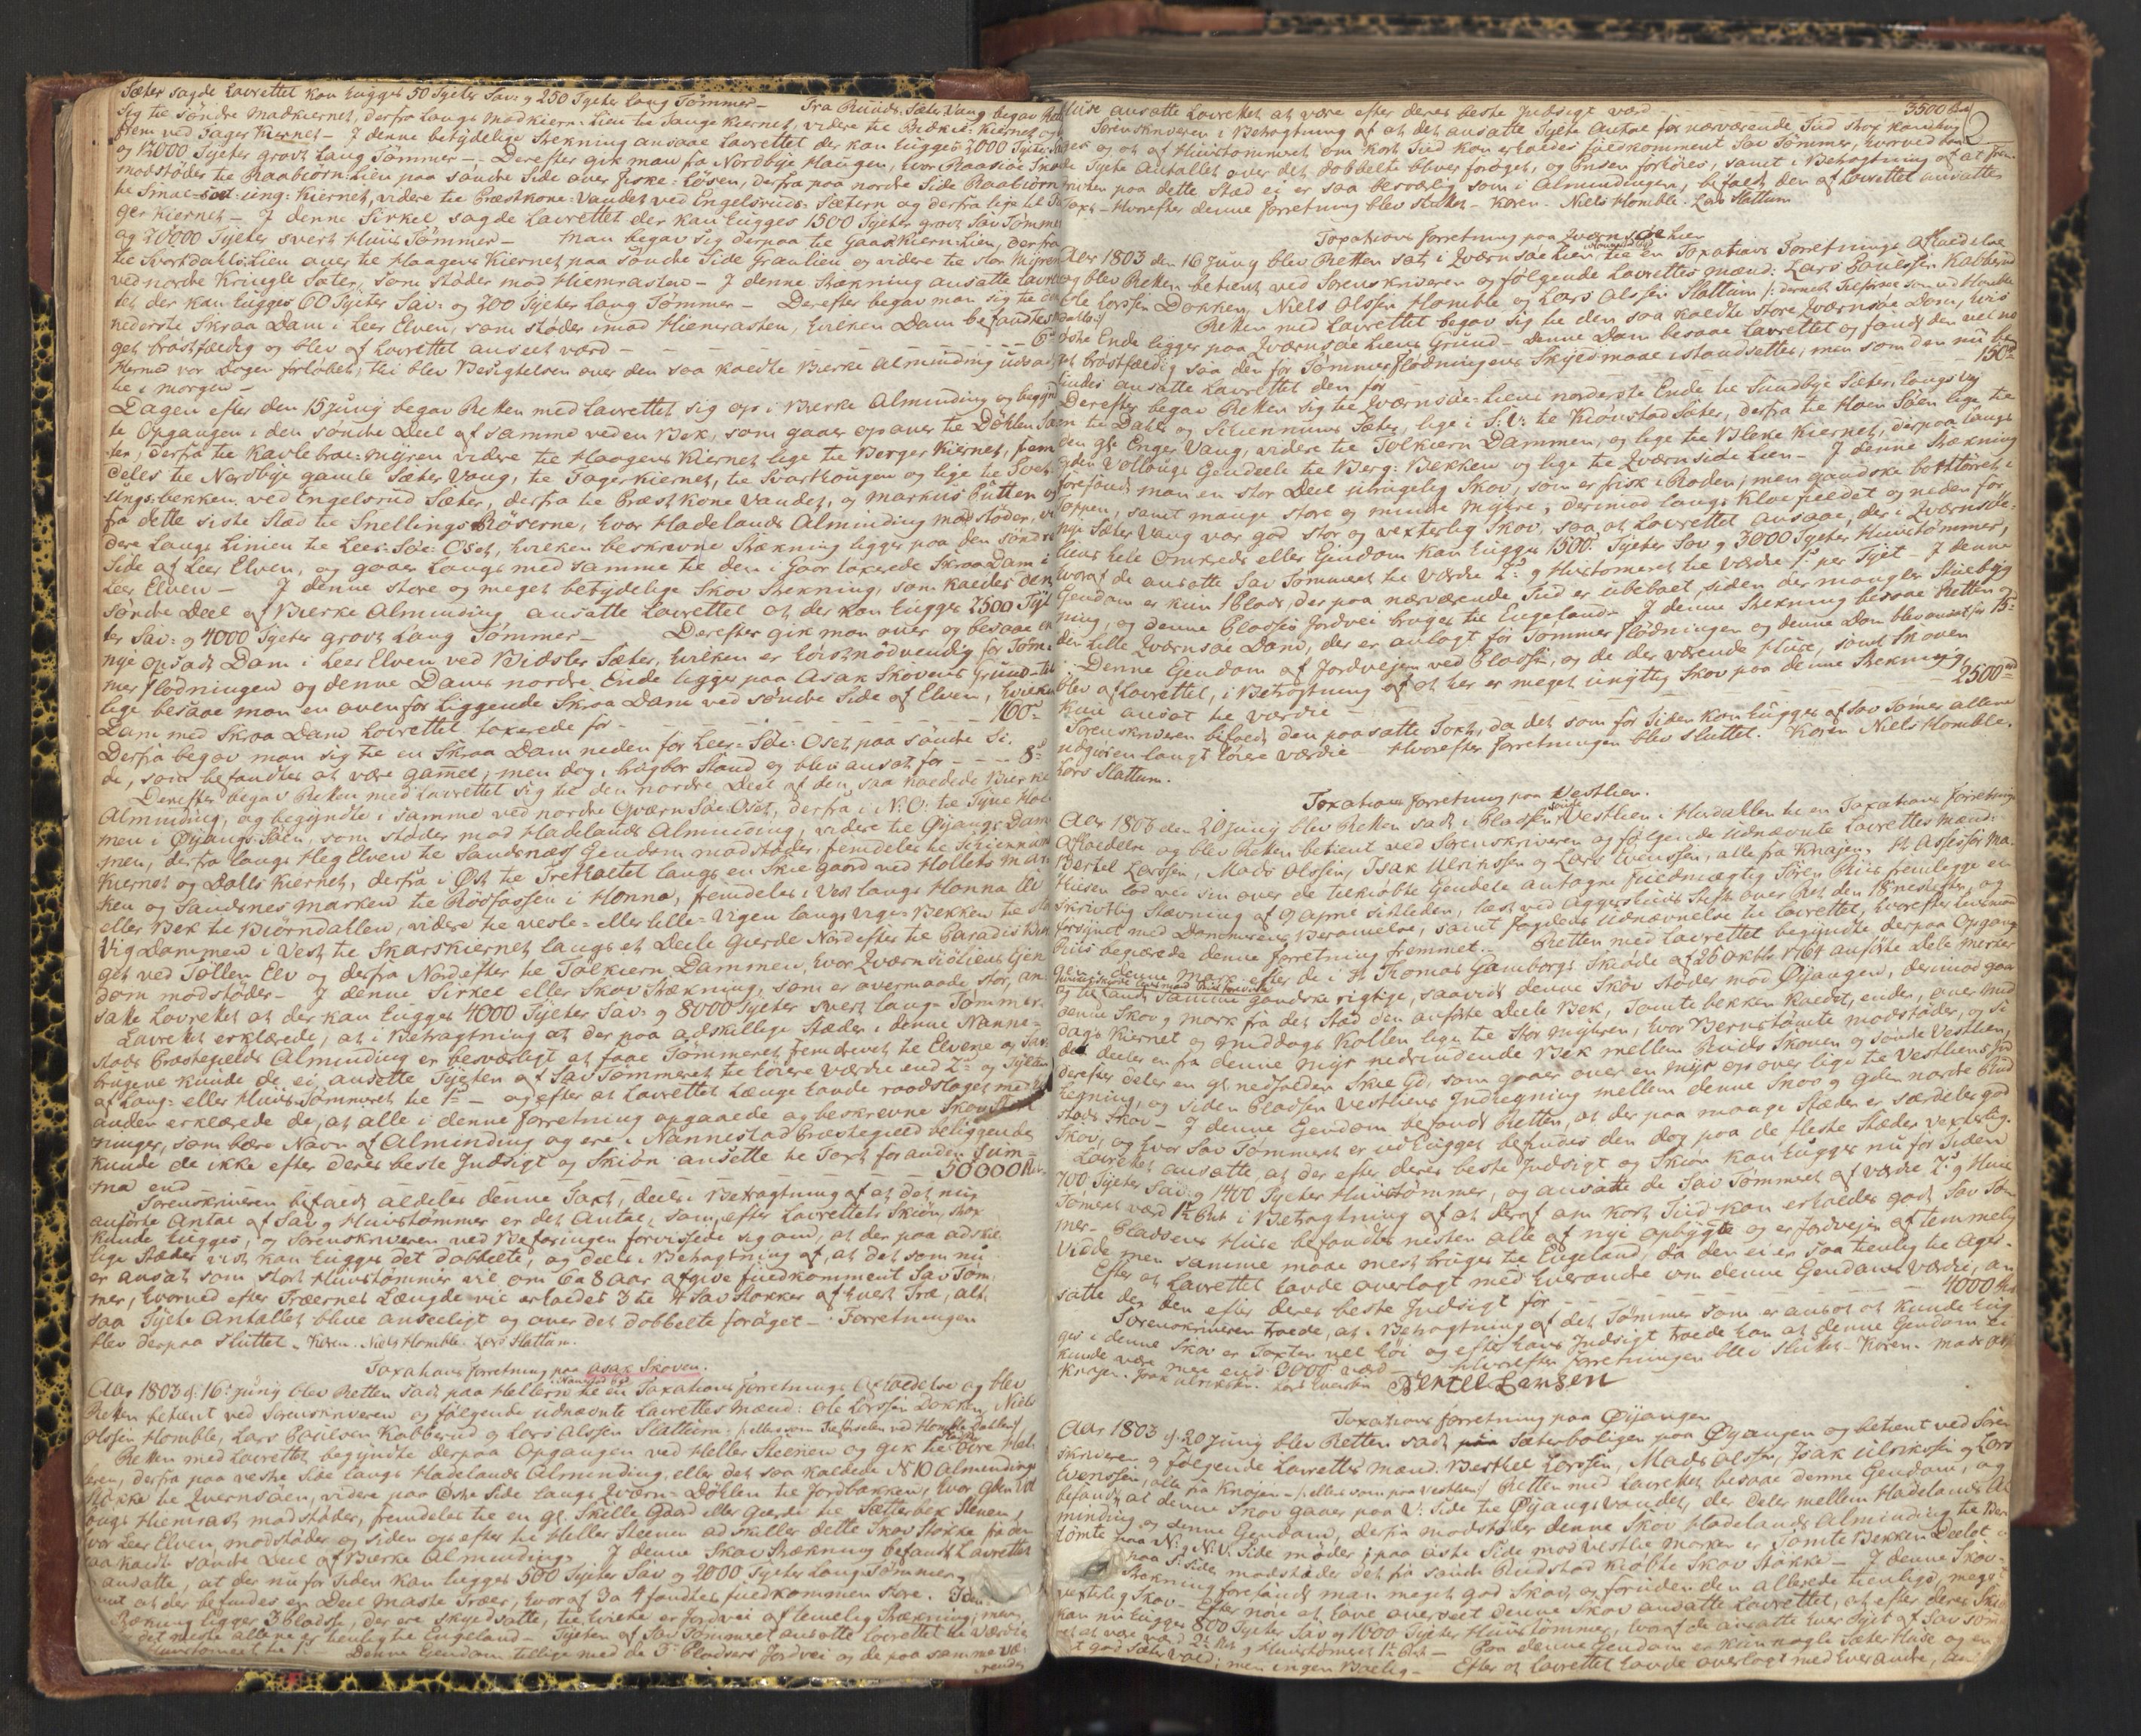 Sæter sagde Lavrettet kan hugges 50 Tyeter Sav: og 250 Tyeter lang Tømmer — Fra Ruuds Sæter Vang begav
sig til søndre Madkiernet, derfra langs Madkiern-Lien til Lange Kiernet, videre til Kiernet og
frem ved Tager Kiernet — I denne betydelige Strekning ansaae Lavrettet der kan hugges 3000 Tyeter
og 12000 Tyeter grovt Lang Tømmer — Derefter gik man fra Nordbye Haugen, hvor
modstøder til Raabiørn-Lien paa søndre Side over Fiske-Løsen, derfra paa nordre Side Raabiørn
til Kiernet, videre til Præstkone-Vandet ved Engelsruds-Sætern og derfra lige til
ger Kiernet — I denne Sirkel sagde Lavrettet der kan hugges 1500 Tyeter grovt Sav Tømmer
og 20000 Tyeter svert Huus Tømmer — Man begav sig derpaa til Gaaskiern-Lien, derfra
til Svartdahls-Lien over til Haagens Kiernet paa søndre Side Granlien og videre til stor Myren
ved nordre Kringle Sæter, som støder mod Hiemrasten — I denne Strekning ansatte
det der kan hugges 60 Tyeter Sav: og 200 Tyeter Lang Tømmer — Derefter begav man sig til
nederste Skraa Dam i Leer Elven, som støder imod Hiemrasten, hvilken Dam befandtes
get brøstfældig og blev af Lavrettet anseet værd — — — 6
Hermed var Dagen forløbet, thi blev Besigtelsen over den saa kaldte Bierke Alminding udsadt
til i morgen —
Dagen efter den 15 Junÿ begav Retten med Lavrettet sig op i Bierke Alminding og begynd
te Opgangen i den søndre Deel af samme ved en Bek, som gaaer op over til Døhlen Sæ
ter, derfra til Kavlebroe-Myren videre til Haagens Kiernet lige til Berger Kiernet, frem
deles til Nordbye gamle Sæter Vang, til Tagerkiernet, til Svarthougen og lige til Tvet
ungs-bekken, ved Engelsrud Sæter, derfra til Præst Kone Vandet, og Markus Putten og
fra dette siste Stæd til Snellings Røserne, hvor Hadelands Alminding modstøder, vi
dere langs Linien til Leer-Søe-Oset, hvilken beskrevne Strækning ligger paa den søndre
Side af Leer Elven, og gaaer langs med samme til den i Gaar taxerede Skraa Dam i
Leer Elven — I denne store og meget betydelige Skov Strekning, som kaldes den
søndre Deel af Bierke Alminding ansatte Lavrettet at der kan hugges 2500 Tyl
ter Sav: og 4000 Tyeter grovt Lang Tømmer — Derefter gik man over og besaae en
nye opsadt Dam i Leer Elven ved Bidsler Sæter, hvilken er høistnødvendig for Tøm
mer flødningen og denne Dams nordre Ende ligger paa Asak Skovens Grund — til
lige besaae man en ovenfor liggende Skraa Dam ved søndre Side af Elven, hvilken
Dam med Skraa Dam Lavrettet taxerede for — — — 100
Derfra begav man sig til en Skraa Dam neden for Leer-Søe-Oset paa søndre Si
de, som befandtes at være gamel, men dog i brugbar Stand og blev ansat for — — 8
Derefter begav Retten med Lavrettet sig til den nordre Deel af den saa kaldede Bierke
Alminding, og begyndte i samme ved nordre Qværn Søe Oset, derfra i N:O: til Tyve Hol
men i Øyangs-Søen, som støder mod Hadelands Alminding, videre til Øyangs Dam
men, derfra langs Heg Elven til Sandsnæs Gendom modstøder, fremdeles til
Kiernet og Dahls Kiernet, derfra i Øst til Trehaltet langs en Skie gaard ved Hollets Mar
ken og Sandsnes Marken til Rosfossen i Honna, fremdeles i Vest langs Honna til
eller Bek til Biørndahlen, videre til vesle- eller lille-Vigen langs Vige-Bekken til
Vig Dammen i Vest til Skarskiernet langs et Deele Gierde Nordefter til Paradis
get ved Tøllen Elv og derfra Nordefter til Tølkiern Dammen, hvor Qværnsiøliens Gen
dom modstøder — I denne Sirkel eller Skov Strækning, som er overmaade stor, an
satte Lavrettet at der kan hugges 4000 Tyeter Sav- og 8000 Tyeter svert lang-Tømmer.
Lavrettet erklærede, at i Betragtning at der paa adskillige Stæder i denne Nanne-
stads Præstegields Alminding er besværligt at faae Tømmeret fremdrevet til Elvene og Sav-
brugene kunde de ei ansette Tyeten af Sav Tømmeret til høiere Værdie end 2 og Tylten
af Lang- eller Huus-Tømmeret til 1 — og efter at Lavrettet længe havde raadslaget med hin
anden erklærede de, at alle i denne Forretning opgaaede og beskrevne Skov Stræk
ninger, som bære Navn af Alminding og ere i Nannestad Præstegield beliggende
kunde de ikke efter deres beste Indsigt og Skiøn ansette til Taxt for anden Sum-
ma end — — — 50000 Rdr.
Sorenskriveren bifaldt aldeles denne Taxt, deels i Betragtning af at det nu
anførte Antal af Sav og Huustømmer er det Antal, som, efter Lavrettets Skiøn, strax
kunde hugges, og Sorenskriveren ved Befaringen forvissede sig om, at der paa adskil-
lige Stæder vist kan hugges det dobbelte, og deels i Betragtning af, at det som nu
er ansat som stort Huustømmer vil om 6 a 8 Aar afgive fuldkomment Sav Tøm
mer, hvorved efter Træernes Længde vil erholdes 3 til 4 Sav Stokker af hvert Træ, alt
saa Tylte Antallet blive anseeligt og over det dobbelte forøget — Forretningen
blev derpaa sluttet. Koren. Niels Homble. Lars Slattum.
Taxations Forretning paa Asak Skoven.
i Nannestad
Aar 1803 d. 16 Junÿ blev Retten sadt paa Hellern til en Taxations Forretnings Afholdelse og blev
Retten betient ved Sorenskriveren og følgende udnævnte Lavrettes Mænd: Ole Larssen Dokken, Niels
Olssen Homble, Lars Povelsen Kabberud og Lars Olssen Slattum
Retten med Lavrettet begyndte derpaa Opgangen ved Heller Steenen og gik til øvre Hel
leren, derfra paa vestre Side langs Hadelands Alminding, eller det saa kaldede N 10 Almindings
støkke til Qvernsøen, videre paa Østre Side langs Qværn-Døhlen til Jordbakken, hvor
Hiemrast modstøder, fremdeles til en gl. Skille Gaard eller Gierde til Sætterbek Steenen
hvor Leer Elven modstøder og siden op efter til Heller Steenen adskiller dette Skov Støkke fra den
saa kaldte søndre Deel af Bierke Alminding. I denne Skov Strækning befandt Lavrettet
ansatte, at der nu for Tiden kan hugges 500 Tyeter Sav og 2000 Tyeter Lang Tømmer,
samt at der befindes en Deel Maste Træer, hvoraf 3 a 4 fandtes fuldkommen store. I den
Strækning ligger 3 Pladse, der ere skyldsatte, til hvilke er Jordvei af temelig Strækning, men
det meste allene er tienlig til Engeland — Tyeten af Sav Tømmeret ansatte Lavrettet til Værdie
Huustømmeret til 1 Denne Gendom tillige med de 3 Pladsers Jordvei og de paa samme væ-
rende
Huse ansatte Lavrettet at være efter deres beste Indsigt værd — 3500 Rd
2
Sorenskriveren i Betragtning af at det ansatte Tylte Antal for nærværende Tiid strax kan hug
ges og at af Huustømmeret om kort Tiid kan erholdes fuldkomment Sav Tømmer, hvorved
Tylte Antallet over det dobbelte bliver forøget, og Prisen forhøies, samt i Betragtning af at frem
driften paa dette Stæd ei er saa besværlig som i Almindingen, bifaldt den af Lavrettet ansatte
Taxt — Hvorefter denne Forretning blev sluttet — Koren. Niels Homble. Lars Slattum
Taxations Forretning paa Qværnsøe Lien
Aar 1803 den 16 Junÿ blev Retten sat i Qværnsøe Lien til en Taxations Forretnings Afholdelse
og blev Retten betient ved Sorenskriveren og følgende Lavrettes Mænd: Lars Poulssen Kabberud
Ole Larssen Dokken, Niels Olssen Homble og Lars Olssen Slattum
Retten med Lavrettet begav sig til den saa kaldte store Qværnsøe Dam, hvis
Ende ligger paa Qværnsøe Liens Grund — Denne Dam besaae Lavrettet og fandt den
brøstfældig saa den for Tømmerflødningens Skyld maae istandsettes, men som den nu be-
findes ansatte Lavrettet den for — 150
Derefter begav Retten sig til Qværnsøe-Liens norderste Ende til Sundbye Sæter, langs
til Dahls og Sæter, lige i S:V: til Kionstad Sæter, derfra til Søen lige til
den gl. Enger Vang, videre til Tolkiern Dammen, og lige til Bleke Kiernet, derpaa langs
Gendeele til Berg-Bekken og lige til Qværnside Lien — I denne Strekning
forefandt man en stor Deel ubrugelig Skov, som er frisk i Roden, men gandske borttøret i
Toppen, samt mange store og mindre Myhre, derimod langs og neden for
nye Sæter Vang var god stor og vexterlig Skov, saa at Lavrettet ansaae, der i Qværnsøe-
liens hele Omkreds eller Eiendom kan hugges 1500 Tyeter Sav og 3000 Tyeter Huustømmer,
hvoraf de ansatte Sav Tømmeret til Værdie 2 og Huustomeret til Værdie 1 per Tylt — I denne
Gendom er kun 1 Plads, der paa nærværende Tiid er ubeboet, siden der mangler Stuebyg
ning, og denne Pladses Jordvei bruges til Engeland — I denne Strekning besaae Retten
den lille Qværnsøe Dam, der er anlagt for Tømmer flødningen og denne Dam blev ansat for 15
Denne Gendom af Jordvejen ved Pladsen, og de der værende Huse, samt Skoven
blev af Lavrettet, i Betragtning af at her er meget ungtig Skov paa denne Strekning
kun ansat til Værdie — 2500
Sorenskriveren bifaldt den paasatte Taxt, da det som for Tiden kan hugges af Sav Tømer allene
udgiør en langt høiere Værdie — Hvorefter Forretningen blev sluttet. Koren Niels Homble.
Lars Slattum.
Taxations Forretning paa Vestlien.
Aar 1803 den 20 Junÿ blev Retten sadt i Pladsen Søndre Vestlien i Hurdahlen til en Taxations Forretnings
Afholdelse og blev Retten betient ved Sorenskriveren og følgende udnævnte Lavrettes Mænd:
Bertel Larssen, Mads Olssen, Isak Ulrikssen og Lars Evenssen, alle fra Knajen. Hr Assessor Ma
thisen lod ved sin over de tilkiøbte Gendele antagne Fuldmægtig Sören Riis fremlegge en
skriftlig Stævning af 9 Aprill sistleden, læst ved Aggershuus Stifts over Ret den 18 nestefter, og
forsynet med Dommerens Berammelse, samt Fogdens udnævnelse til Lavrettet, hvorefter
Riis begiærede denne Forretning fremmet. Retten med Lavrettet begyndte derpaa Opgang
denne Mark efter de i Hr Thomas Gamborgs Skiøde af 26 Oktbr 1764 anførte Dele Merker
og befandt samme gandske rigtige, saavidt denne Skov støder mod Øyangen, derimod gaar
denne Skov og Mark fra det Stæd den anførte Deele Bek, Tomte bekken kaldet, ender, over Mid
dags Kiernet og Middags Kollen lige til Stor Myhren, hvor Bernstomte modstøder, og si
den deeler en fra denne Myr nedrindende Bek mellem Ruuds Skoven og søndre Vestlien,
derefter deler en gl. nedfalden Skie Gd, som gaaer over en Myr op over lige til Vestliens Ind
hegning, og siden Pladsen Vestliens Indhegning mellem denne Skov og Gden nordre Rud
stads Skov — I denne Gendom befandt Retten, at der paa mange Stæder er særdeles god
Skov, og hvor Sav Tømmeret er udhugget befindes den dog paa de fleste Stæder vexterlig.
Lavrettet ansatte, at der efter deres beste Indsigt og Skiøn kan hugges nu for Tiden
700 Tyeter Sav og 1400 Tyeter Huustømmer, og ansatte de Sav Tømmeret af Værdie 2 og Huus
Tømmeret værd 1 i Betragtning af at deraf om kort Tiid kan erholdes godt Sav Tøm
mer — Pladsens Huse befandtes nesten alle af nye opbygte og er Jordvejen af temmelig
Vidde men samme maae mest bruges til Engeland, da den ei er saa tienlig til Ager —
Efter at Lavrettet havde overlagt med hverandre om denne Gendoms Værdie, an
satte de den efter deres beste Indsigt for — 4000
Sorenskriveren troede, at i Betragtning af det Tømmer som er ansat at kunde hug
ges i denne Skov er Taxten vel høi og efter hans Indsigt troede han at denne Gendom ei
kunde være mere end 3000 værd — Hvorefter Forretningen blev sluttet — Koren. Mads Olss
Knajen. Isak Ulrikssen. Lars Evenssen Bertel Larssen
Taxations Forretning paa Øyangen
Aar 1803 d. 20 Junÿ blev Retten sadt Sæterboligen paa Øyangen og betient ved Soren
skriveren og følgende Lavrettes Mænd. Berthel Larssen, Mads Olssen, Isak Ulrikssen og Lars
Evenssen, alle fra Knajen — Retten med Lavrettet besaae denne Gendom, og
befandt, at denne Skov gaaer paa V: Side til Øyangsvandet, der deler mellem Hadelands Al
minding og denne Gendom, derfra modstøder denne Skov Hadelands Alminding til Bern
tomte paa N: og N:V: Side møder; paa østre Side mod Vestlie Marken er Tomte Bekken Deelet
paa S: Side modstøder det fra søndre Rudstad kiøbte Skov Støkke — I denne Skov-
Strekning forefandt man meget god Skov og foruden den allerede tienlige, meget
vexterlig Skov — Efter nøie at have overseet denne Skov ansatte Lavrettet, at efter deres Skiøn
kan nu hugges 800 Tyeter Sav og 1000 Tyeter Huustømmer, hvoraf de ansatte hver Tylt af Sav Tøm
at være værd 2 og Huustømeret 1 — Paa denne Gendom er kun nogle Sæter Huse og en
god Sæter Vold; men ingen Boelig — Efter at Lavrettet havde overlagt med hverandre,